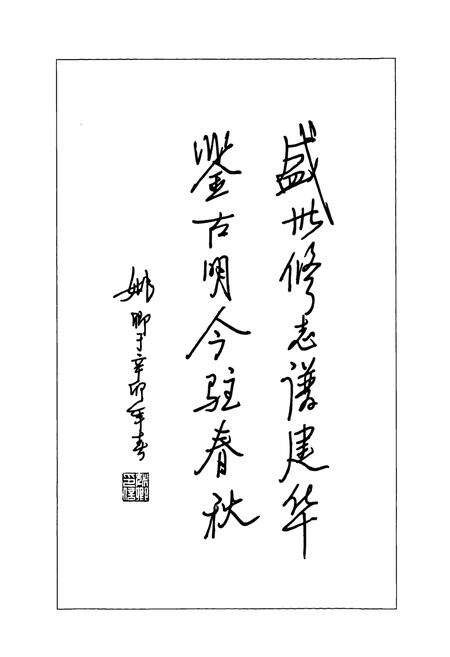 盛世修志谱建华
鉴古明今驻春秋
姚卿于辛卯年春